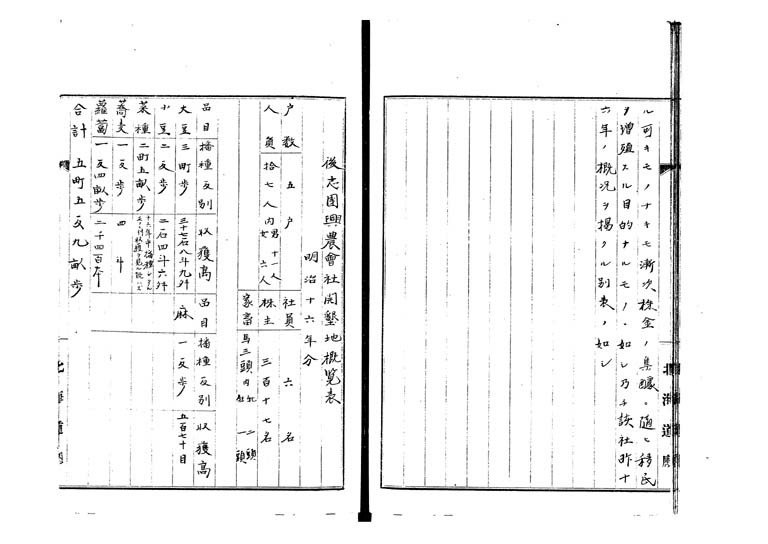 ル可キモノナキモ漸次株金ノ集醵ニ随ヒ移民
ヲ増殖スル目的ナルモノヽ如シ乃チ該社昨十
六年ノ概況ヲ掲クル別表ノ如シ
北海道廳
後志國興農會社開墾地概覧表
明治十六年分
戸数 五戸 社員 六名
人員 拾七人内 男十一人 女六人 株主 三百十七名
家畜 馬三頭内 牝二頭 牡一頭
品目 播種反別 収穫高 品目 播種反別 収穫高
大豆 三町歩 三十七石八斗九升 麻 一反歩 五百七十目
小豆 二反歩 二石四斗六升
菜種 二町五畝歩
蕎麦 一反歩 四斗
蘿蔔 一反四畝歩 二千四百本
合計 五町五反九畝歩
北海道廳